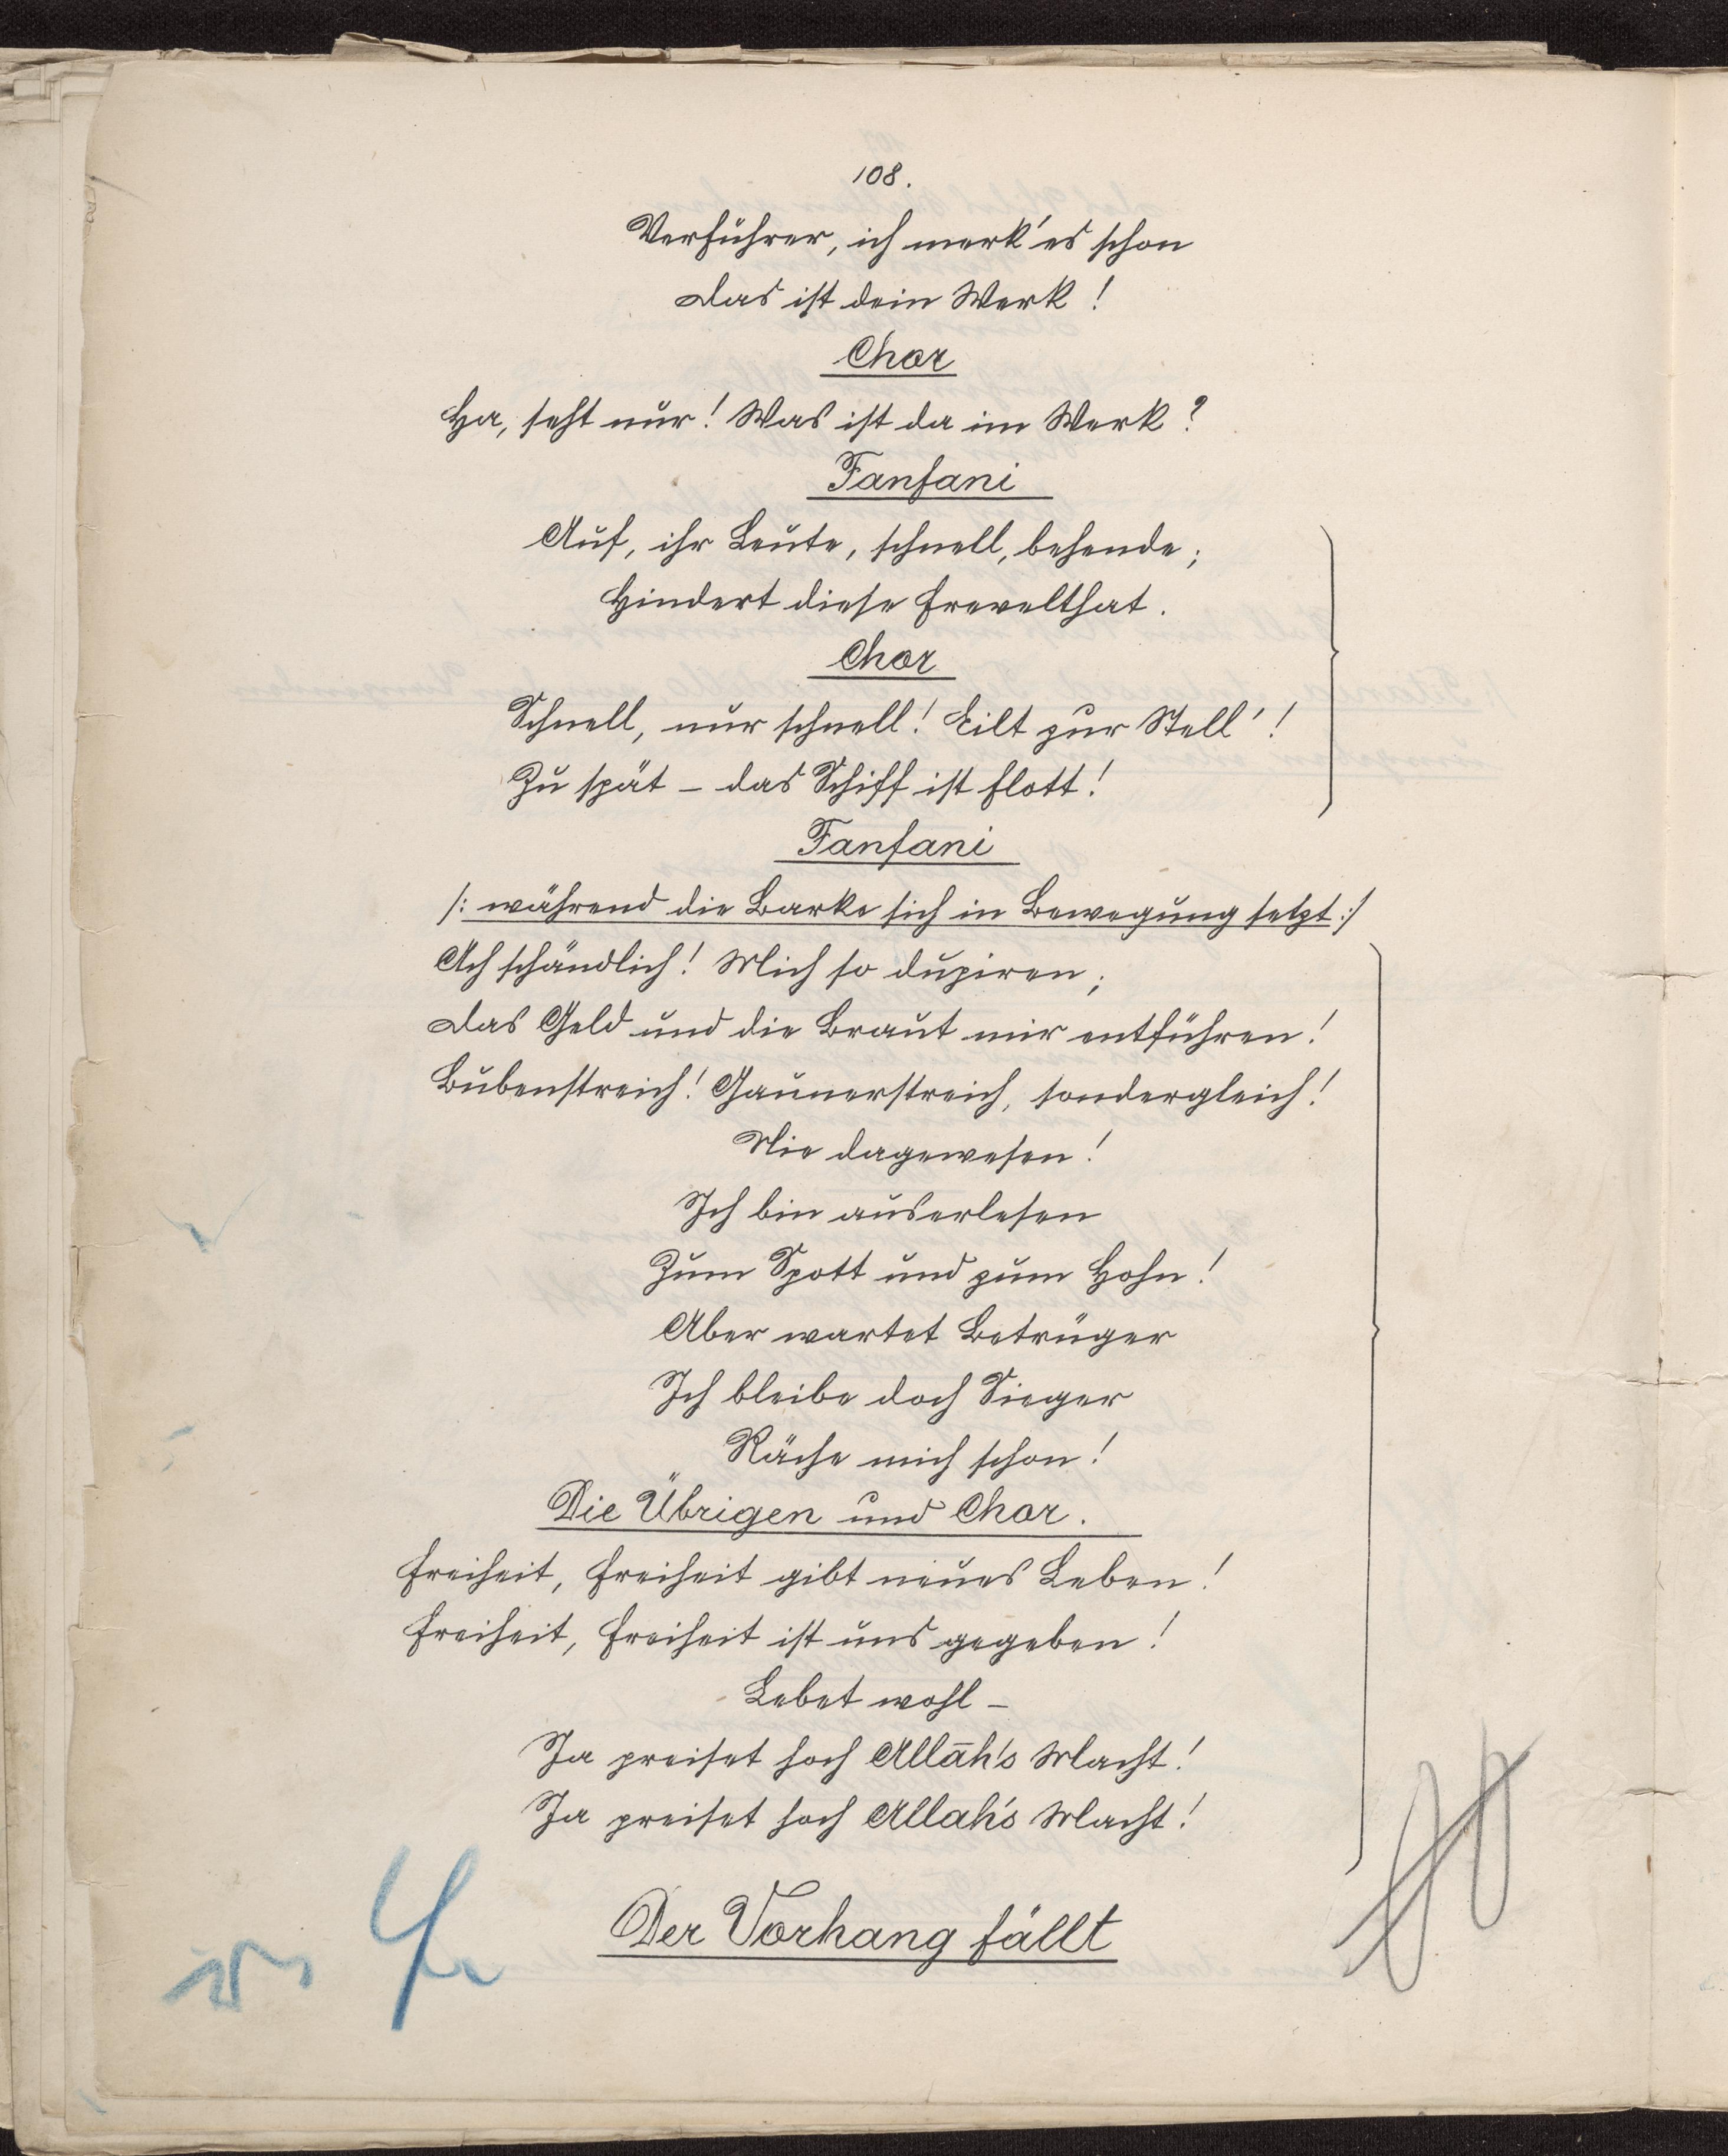 108.
Verführer, ich merk' es schon
Das ist dein Werk!
Chor
Ha, seht nur! Was ist da im Werk?
Fanfani
Auf, ihr Leute, schnell, behende;
Hindert diese Frevelthat.
Chor
Schnell, nur schnell! Eilt zur Stell'!
Zu spät – das Schiff ist flott!
Fanfani
/: während die Barke sich in Bewegung setzt :/
Ach schändlich! Mich so dupiren;
Das Geld und die Braut mir entführen!
Bubenstreich! Gaunerstreich, sondergleich!
Nie dagewesen!
Ich bin auserlesen
Zum Spott und zum Hohn!
Aber wartet Betrüger
Ich bleibe doch Sieger
Räche mich schon!
Die Übrigen und Chor.
Freiheit, Freiheit gibt neues Leben!
Freiheit, Freiheit ist uns gegeben!
Lebet wohl –
Ja preiset hoch Allāh's Macht!
Ja preiset hoch Allah's Macht!
Der Vorhang fällt